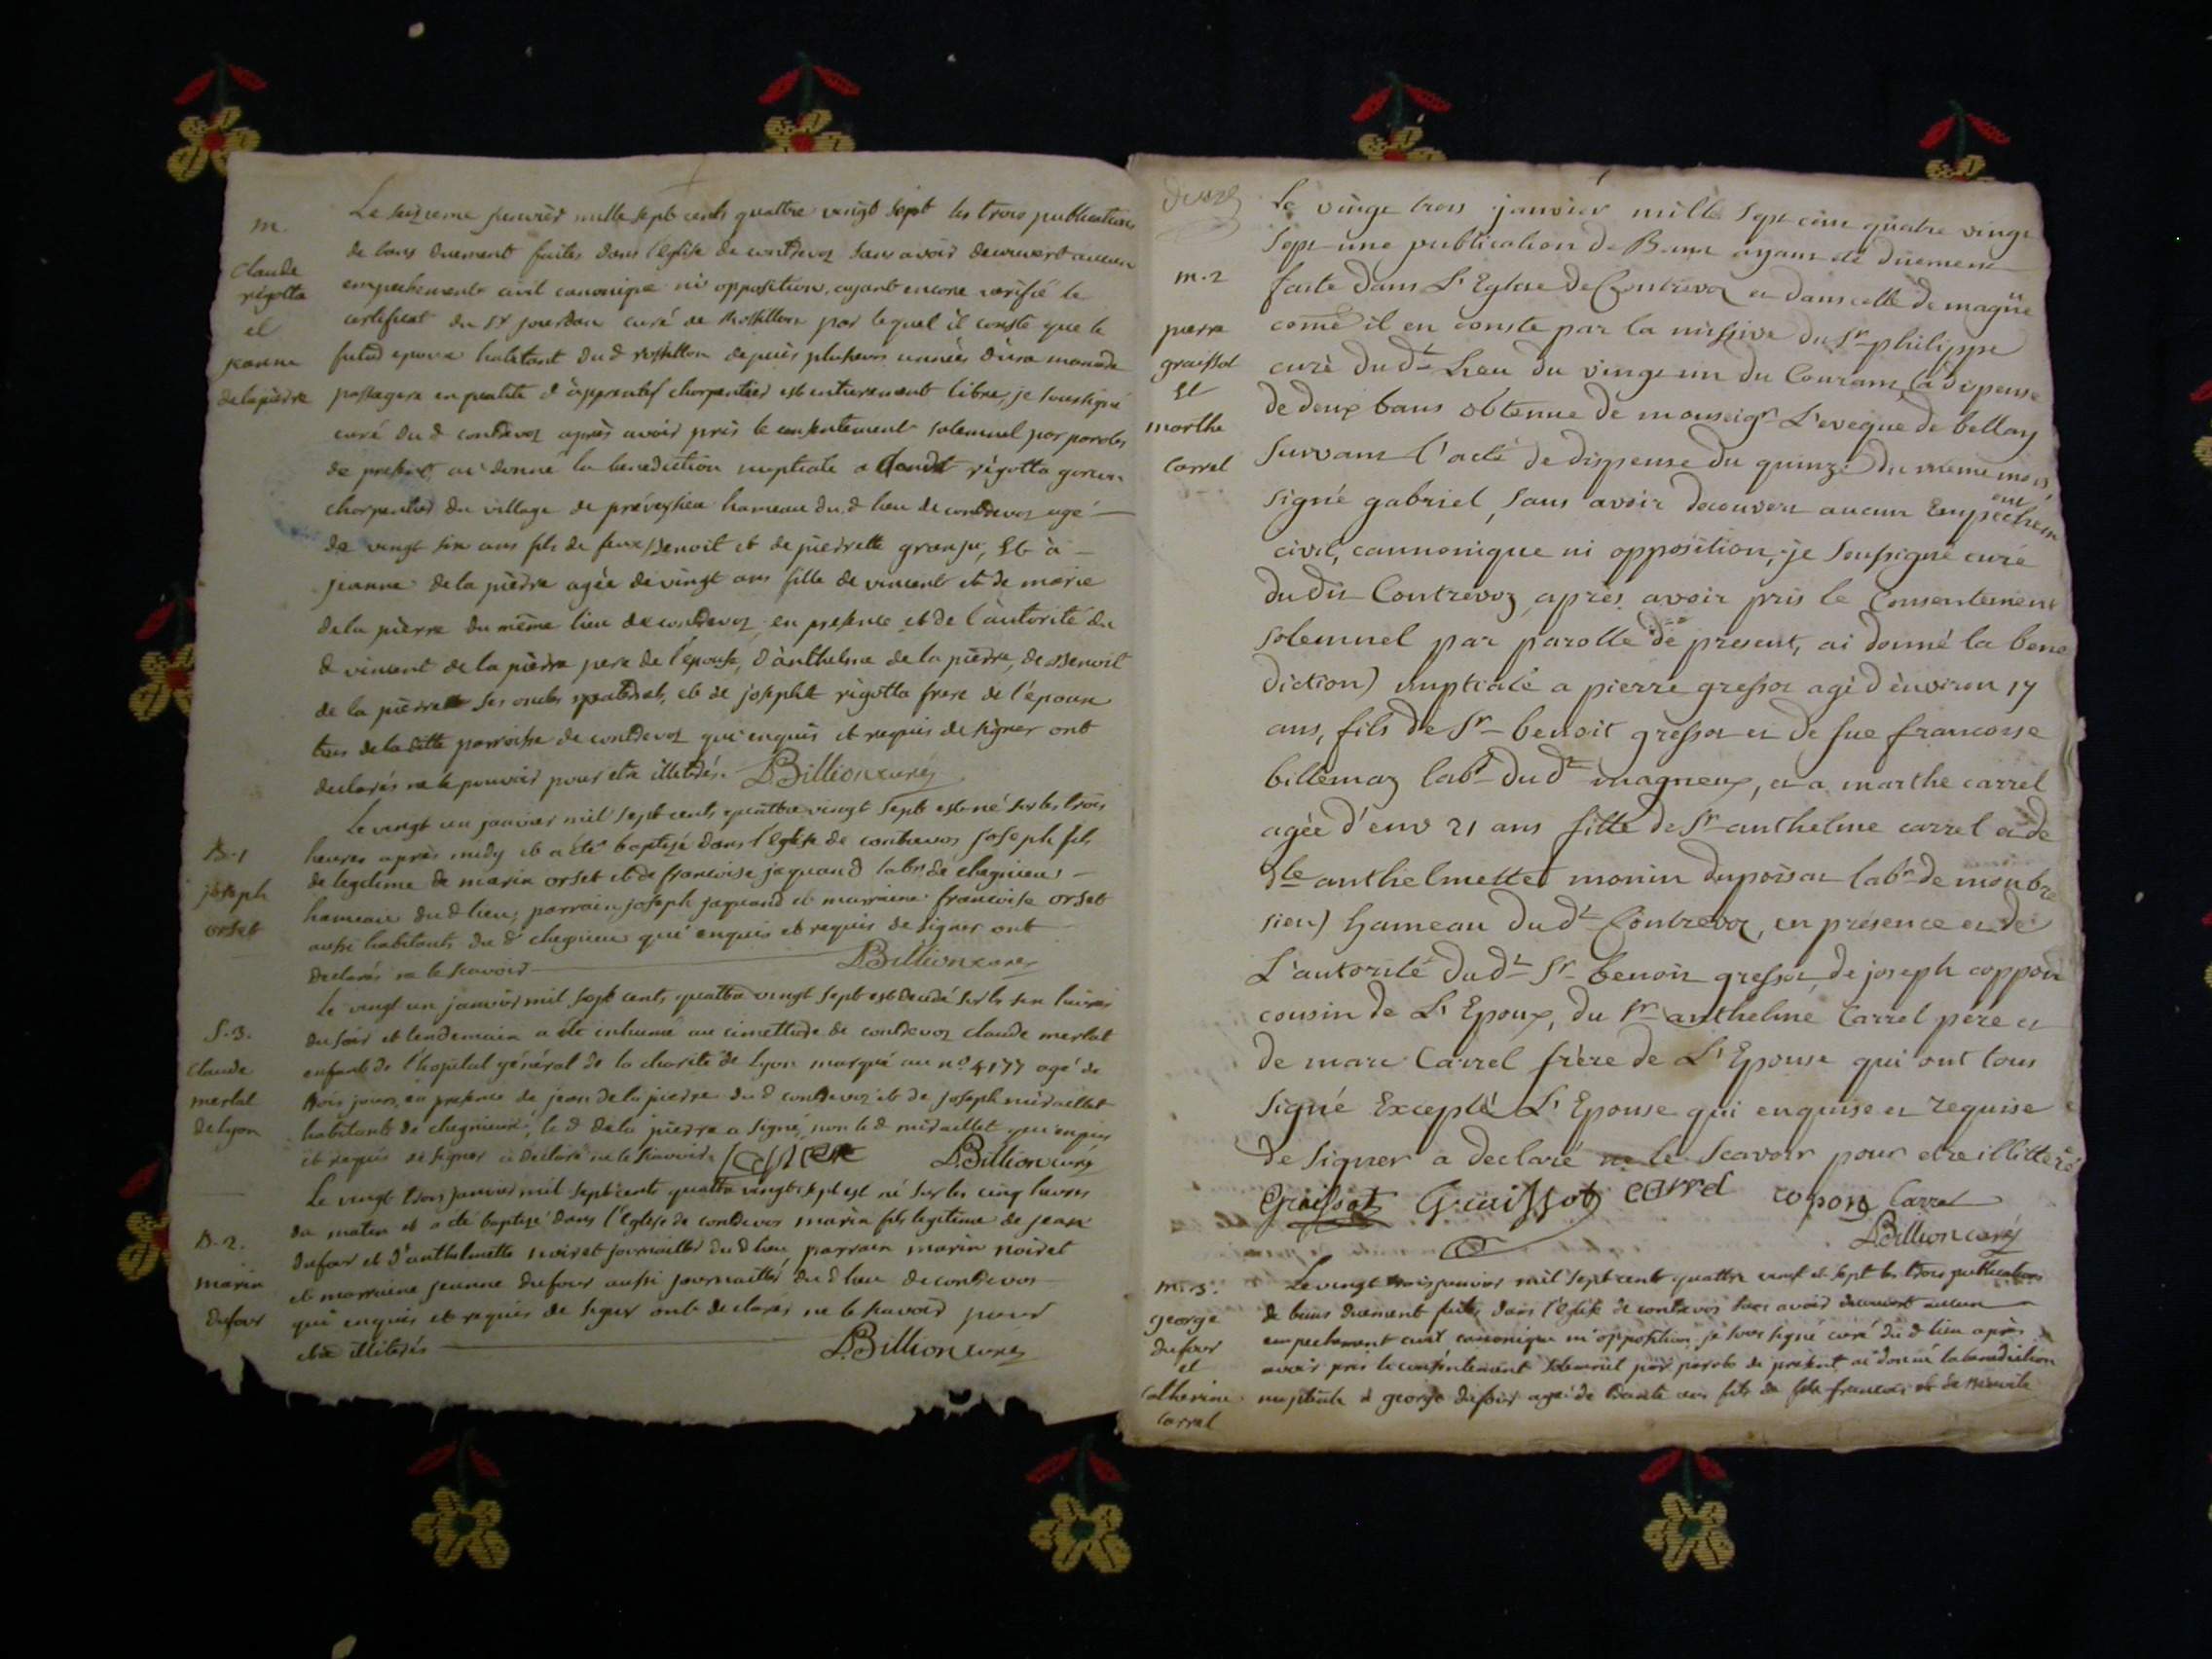 m.
Claude
rigotta
et
jeanne
delapierre
Le seizieme janvier mille sept cents quattre vingt sept les trois publications
de bans duement faites dans l'Eglise de contrevoz sans avoir decouvert aucun
empechement civil canonique ni opposition, ayant encore verifié le
certificat du Sr jourdan curé de Rossillon par lequel il conste que le
futur epoux habitant dud rossillon depuis plusieurs années d'une maniere
passagere en qualité d'apprentif charpentier est entierement libre, je soussigné
curé dud contrevoz après avoir pris le consentement solemnel par paroles
de present, ai donné la benediction nuptiale a Claude rigotta garcon
charpentier du village de préveyzieu hameau dud lieu de contrevoz agé
de vingt six ans fils de feux Benoit et de pierrette granju, Et à
jeanne de la pierre agée de vingt ans fille de vincent et de marie
dela pierre du même lieu de contrevoz, en presence et de l'autorité du
d vincent de la pierre pere de l'epouse, d'anthelme de la pierre, de Benoit
de la pierre ses oncles paternels, et de josepht rigotta frere de l'époux
tous de la ditte parroisse de contrevoz qui enquis et requis de signer ont
declarés ne le pouvoir pour etre illiterés. DBillion curé
B.1
joseph
orset
Le vingt un janvier mil sept cents quattre vingt sept est né sur les trois
heures après midy et a été baptisé dans l'Eglise de contrevos joseph fils
de legitime de marin orset et de francoise jaquand labr de chegnieu
hameau dud lieu, parrain joseph jaquand et marraine francoise orset
aussi habitants du d chegnieu qui enquis et requis de signer ont
declarés ne le scavoir DBillion curé
S.3.
Claude
merlat
de lyon
Le vingt un janvier mil sept cents quattre vingt sept est decedé sur les six heures
du soir et lendemain a été inhumé au cimettiere de contrevoz claude merlat
enfant de l'hopital général de la charité de Lyon marqué au no 4177 agé de
trois jours, en presence de jean dela pierre du d contrevoz et de joseph miraillet
habitants de chegnieu, le d dela pierre a signé, non le d miraillet qui enquis
et requis de signer a declaré ne le scavoir. DBillion curé
B.2.
marin
dufour
Le vingt trois janvier mil sept cents quattre vingt sept est né sur les cinq heures
du matin et a été baptisé dans l'Eglise de contrevos marin fils legitime de jean
dufour et d'anthelmette noiret journaillier du d lieu, parrain marin noiret
et marraine jeanne dufour aussi journailler du d lieu de contrevos
qui enquis et requis de signer ont declarés ne le scavoir pour
etre illiterés DBillion curé
m.2
pierre
graissot
Et
marthe
Carrel
Le vingt trois janvier mille sept cent quatre vingt
sept une publication de Bans ayant été duement
faite dans L'Eglise de Contrevoz et dans celle de magnie
come il en conste par la missive du Sr philippe
curé du dt Lieu du vingt un du Courant, la dispense
de deux bans obtenue de monseigr L'eveque de bellay
suivant l'acte de dispense du quinze du même mois,
signé gabriel, sans avoir decouvert aucun Empechement
civil, cannonique ni opposition, je soussigné curé
dudit Contrevoz, après avoir pris le Consentement
solemnel par parolle de present, ai donné la bene
diction nuptiale a pierre gressot agé d'environ 17
ans, fils de Sr benoit gressot et de fue francoise
billemaz labr du dt magneux, et a marthe carrel
agée d'env 21 ans fille de Sr anthelme carrel et de
dle anthelmette monin dupoisat labr de monbre
sieu hameau du dt Contrevoz, en présence et de
L'autorité du dt Sr benoit gressot, de joseph coppon
cousin de L'Epoux, du Sr anthelme Carrel pere et
de marc Carrel frère de L'Epouse qui ont tous
signé Excepté L'Epouse qui enquise et requise
de signer a declaré ne le scavoir pour etre illitteré
Graissot Graissot carrel copon Carrel
DBillion curé
m.3.
george
dufour
et
Catherine
Carrel
Le vingt trois janvier mil sept cents quattre vingt et sept les trois publications
de bans duement faites dans l'eglise de contrevos sans avoir decouvert aucun
empechement civil canonique ni opposition je soussigné curé du d lieu après
avoir pris le consentement solemnel par parole de present ai donné la benediction
nuptiale a george dufour agé de trente ans fils de feu francois et de Benoite